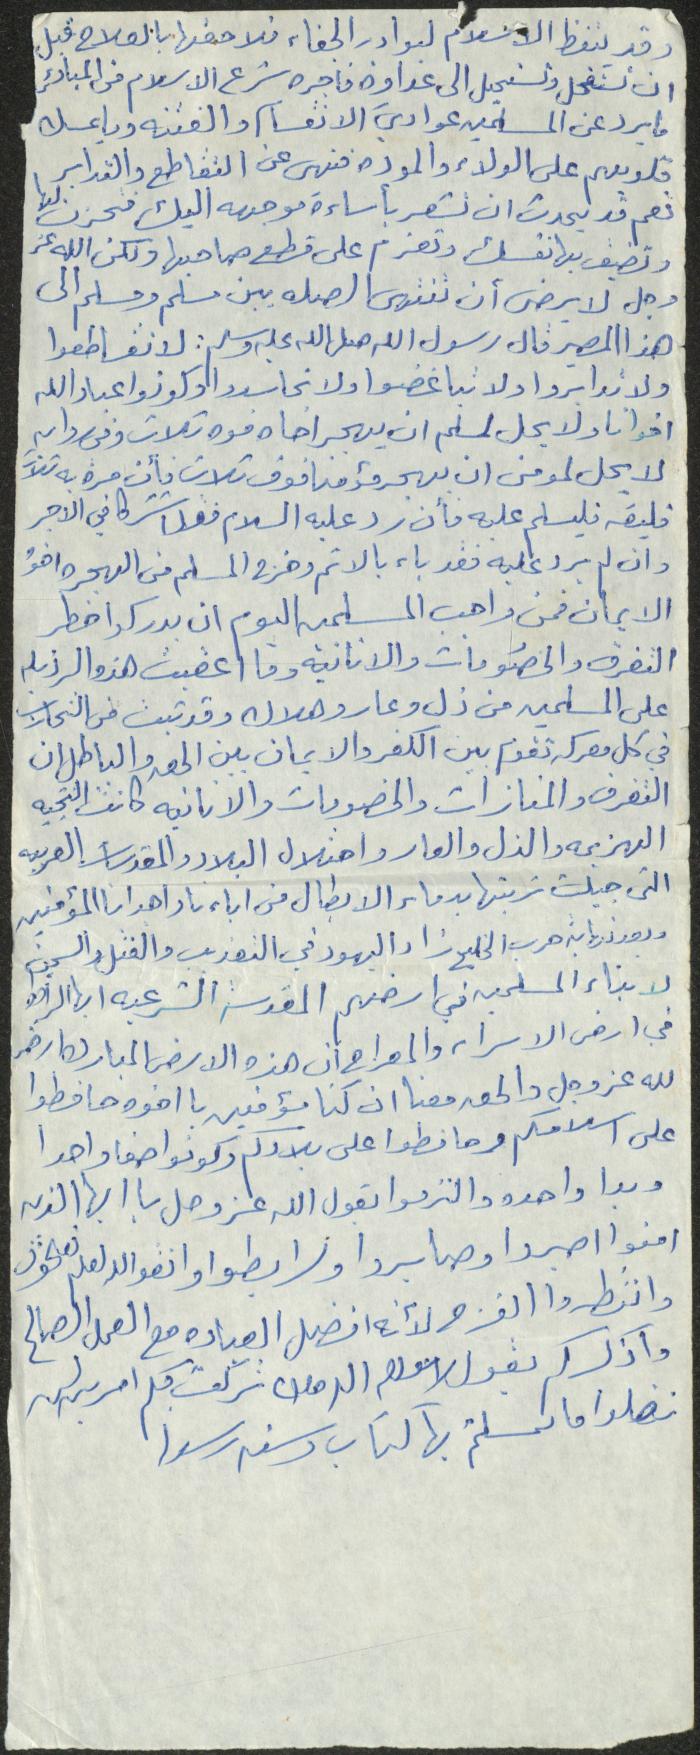 وقد تيقظ الاسلام لبوادر الجفاء فلاحقها بالعلاج قبل
ان تستفحل وتستحيل الى عداوة فاجره شرع الاسلام من المبادئ
ما يرد عن المسلمين عوادي الانقسام والفتنه وما يمسك
قلوبهم على الولاء والموده فنهى عن التقاطع والتدابر
نعم قد يحدث ان تشعر بأساءة موجهه اليك فتحزن لها
وتضيق بها نفسك وتعزم على قطع صاحبها ولكن الله عز
وجل لا يرضى أن تنتهي الصله بين مسلم ومسلم الى
هذا المصير قال رسول الله صلى الله عليه وسلم : لا تقاطعوا
ولا تدابروا ولا تباغضوا ولا تحاسدوا وكونوا عباد الله
اخوانا ولا يحل لمسلم ان يهجر اخاه فوق ثلاث وفي روايه
لا يحل لمؤمن ان يهجر مؤمنا فوق ثلاث فأن مرت به ثلاث
فليلقه فليسلم عليه فأن رد عليه السلام فقد اشتركا في الاجر
وان لم يرد عليه فقد باء بالاثم وخرج المسلم من الهجره اخوة
الايمان فمن واجب المسلمين اليوم ان يدركوا خطر
التفرق والخصومات والانانيه وما اعقبت هذه الرذيله
على المسلمين من ذل وعار وهلاك وقد ثبت من التجارب
في كل معركه تقوم بين الكفر والايمان بين الحق والباطل ان
التفرق والمنازات والخصومات والانانيه كانت النتيجه
الهزيمه والذل والعار واحتلال البلاد والمقدسات العربيه
التي جبلت تربتها بدماء الابطال من اباءنا واجدانا المؤمنين
وبعد نهاية حرب الخليج زاد اليهود في التعذيب والقتل والسجن
لابناء المسلمين في ارضهم المقدسة الشرعيه ايها الاخوه
في ارض الاسراء والمعراج أن هذه الارض المباركه ارض
لله عز وجل والحق معنا ان كنا مؤمنين يا اخوه حافظوا
على اسلامكم وحافظوا على بلادكم وكونوا صفا واحدا
ويدا واحده والتزموا بقول الله عز وجل يا ايها الذين
امنوا اصبروا وصابروا ورابطوا واتقوا الله لعلكم تفلحون
وانتظروا الفرج لأنه افضل العباده مع العمل الصالح
وأذكركم بقول تركت فيكم امرين لن
تضلوا ما تمسلتم بها كتاب وسنه رسوله